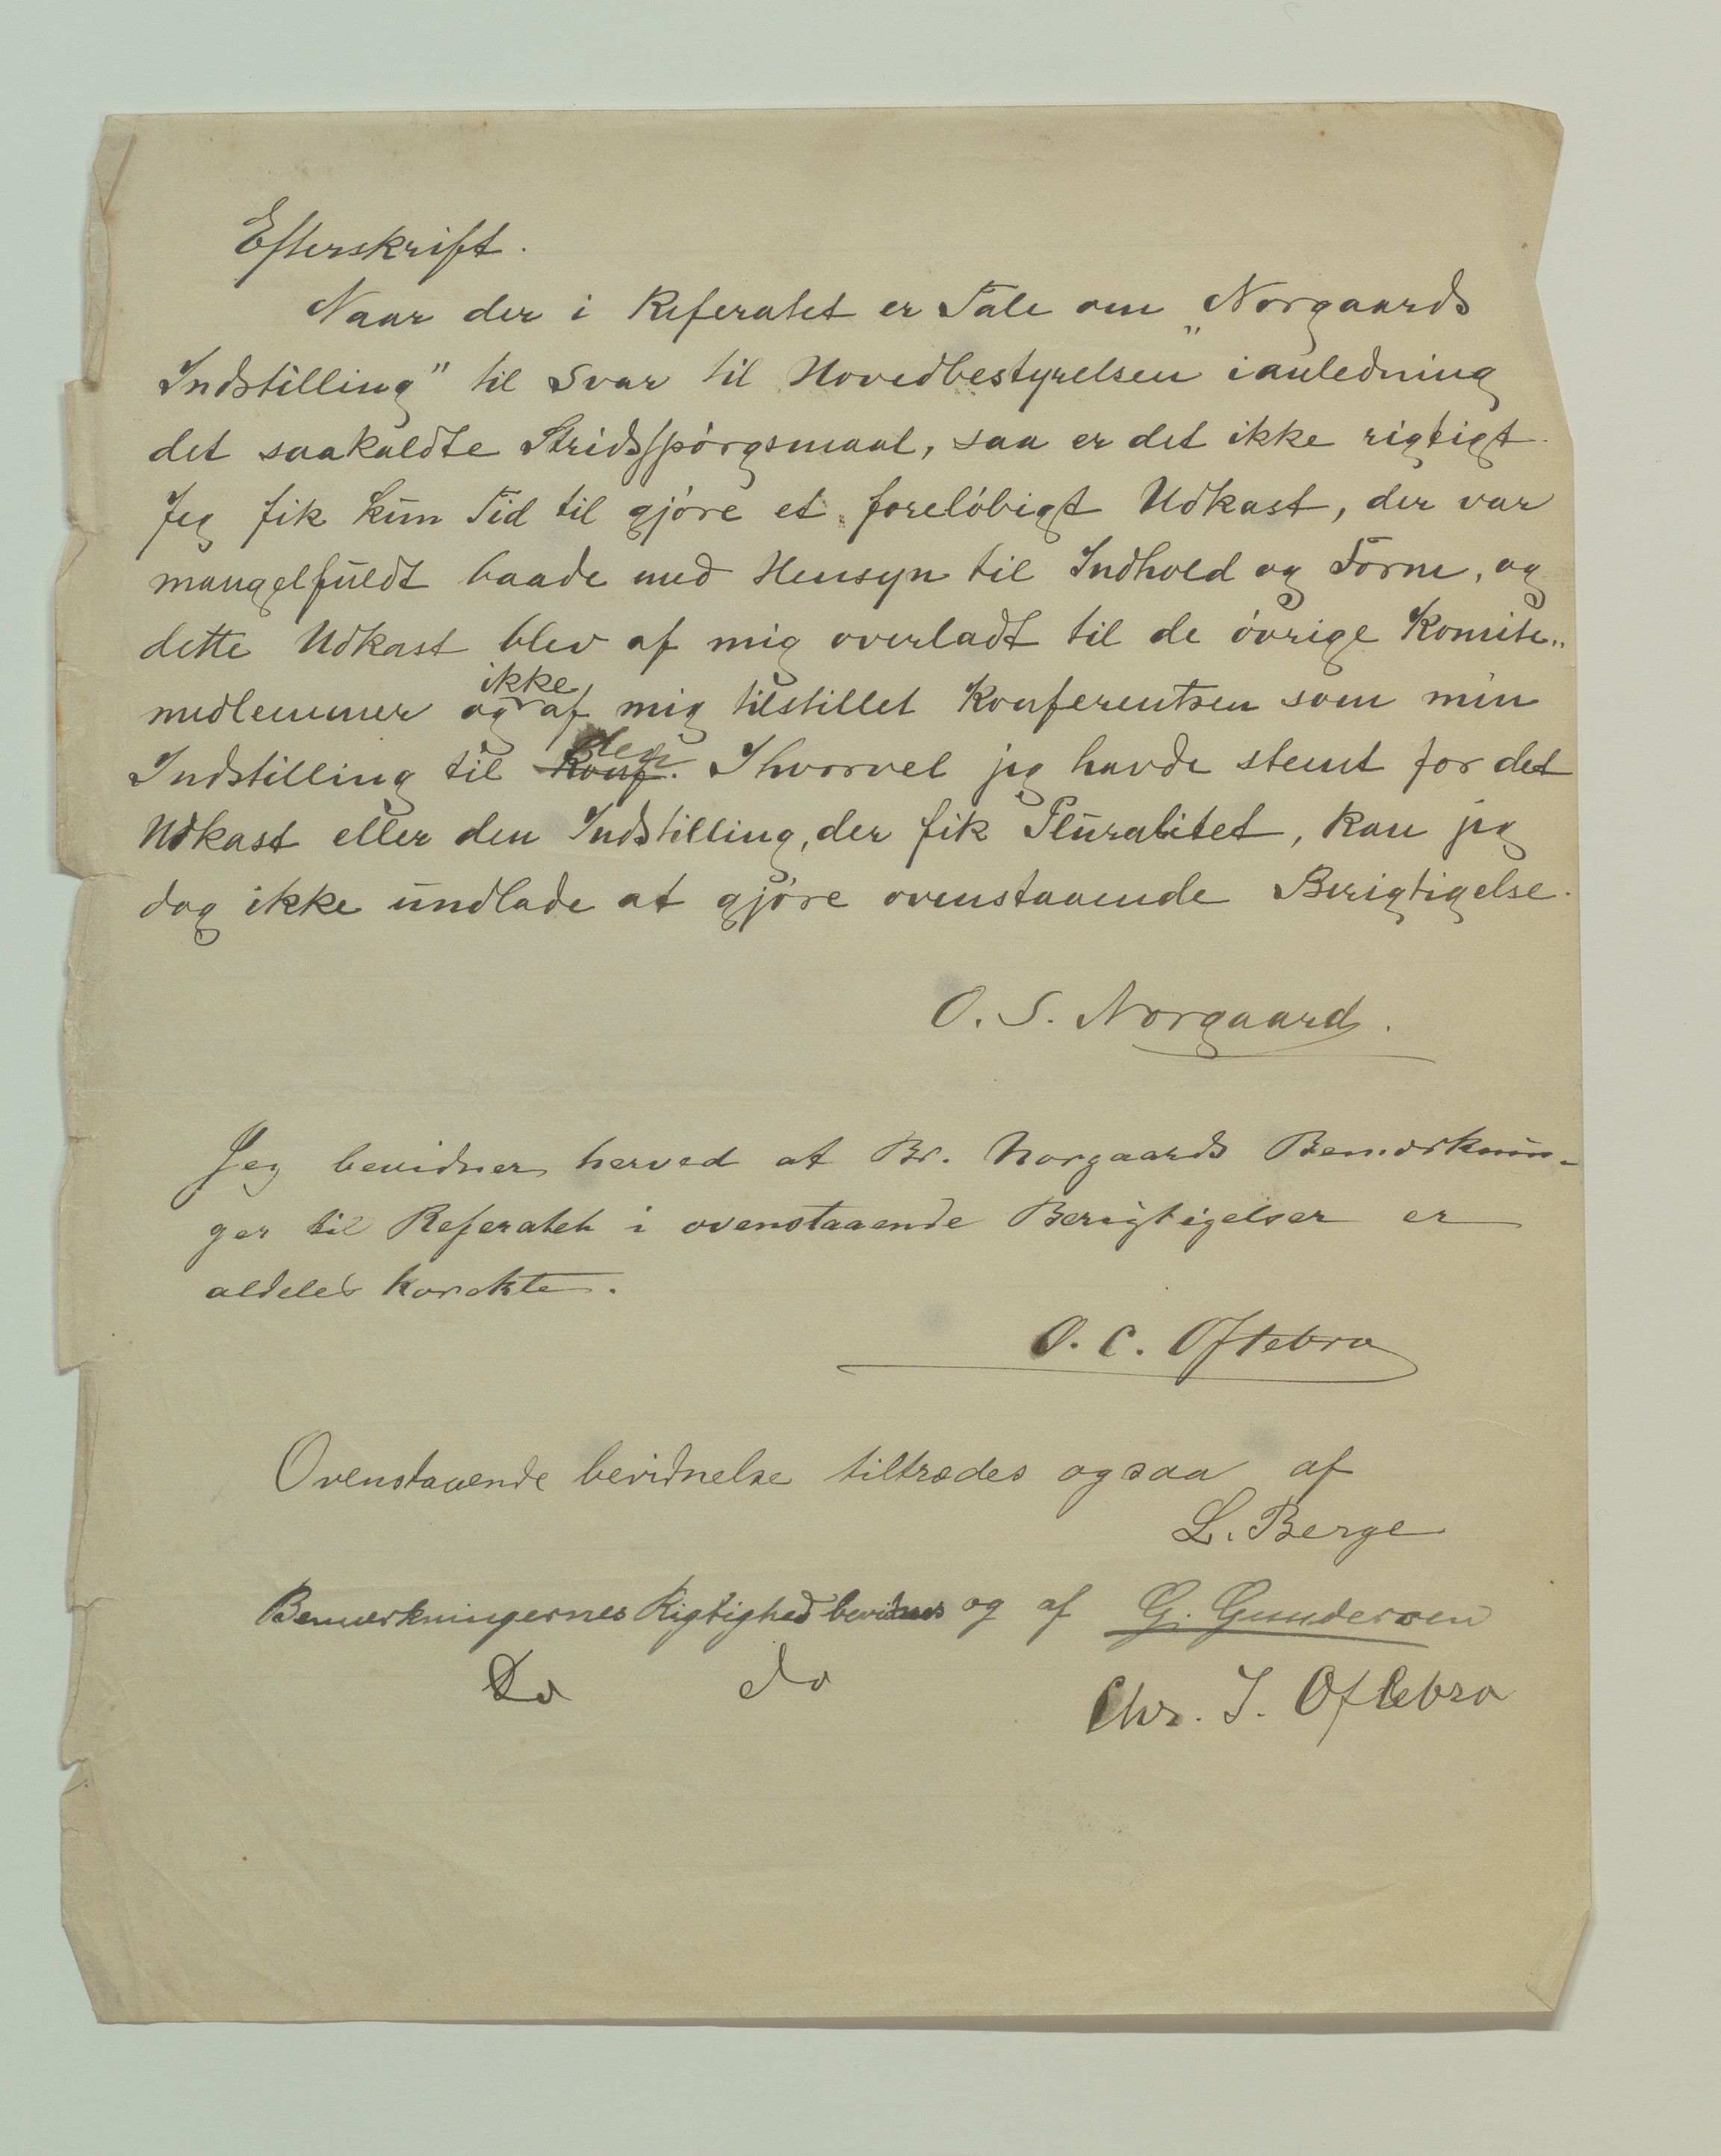 Efterskrift.
Naar der i Referatet er Tale om „Norgaards
Indstilling" til Svar til Hovedbestyrelsen ianledning
det saakaldte Stridsspórgsmaal, saa er det ikke rigtigt.
Jeg fik kun Tid til gjóre et forelóbigt Udkast, der var
mangelfuldt baade med Hensyn til Indhold og Form, og
dette Udkast blev af mig overladt til de óvrige Komite„
medlemmer og ikke af mig tilstillet Konferentsen som min
Indstilling til Konf. den. Ihvorvel jeg havde stemt for det
Udkast eller den Indstilling, der fik Pluralitet, kan jeg
dog ikke undlade at gjóre ovenstaaende Berigtigelse.
O. S. Norgaard.
Jeg bevidner herved at Br. Norgaards Bemærknin-
ger til Referatet i ovenstaaende Berigtigelser er
aldeles korekte.
O. C. Oftebro
Ovenstaaende bevidnelse tiltrædes ogsaa af
L. Berge
Bemærkningernes Rigtighed bevidnes og af G. Gundersen
Do do Chr. I. Oftebro